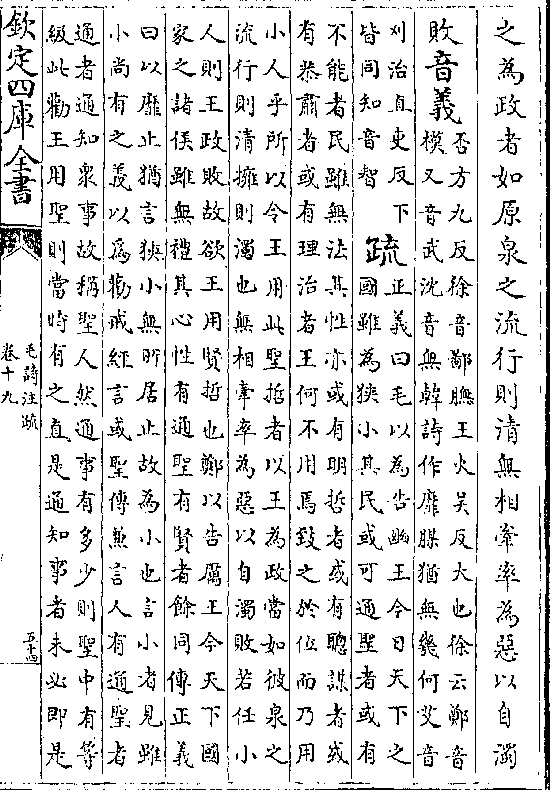 之為政者如原泉之流行則清無相牽率為惡以自濁
敗音義否方九反徐音鄙膴王火吴反大也徐云鄭音
模又音武沈音無韓詩作靡腜猶無幾何艾音
刈治直吏反下
皆同知音智
疏正義曰毛以為告幽王今日天下之
國雖為狹小其民或可通聖者或有
不能者民雖無法其性亦或有明哲者或有聰謀者或
有恭肅者或有理治者王何不用焉致之於位而乃用
小人乎所以令王用此聖哲者以王為政當如彼泉之
流行則清擁則濁也無相牽率為惡以自濁敗若任小
人則王政敗故欲王用賢哲也鄭以告厲王今天下國
家之諸侯雖無禮其心性有通聖有賢者餘同傳正義
曰以靡止猶言狹小無所居止故為小也言小者見雖
小尚有之義以為勸戒經言或聖傳兼言人有通聖者
通者通知衆事故稱聖人然通事有多少則聖中有等
級此勸王用聖則當時有之直是通知事者未必即是
欽定四庫全書
毛詩注疏
卷十九
五十四